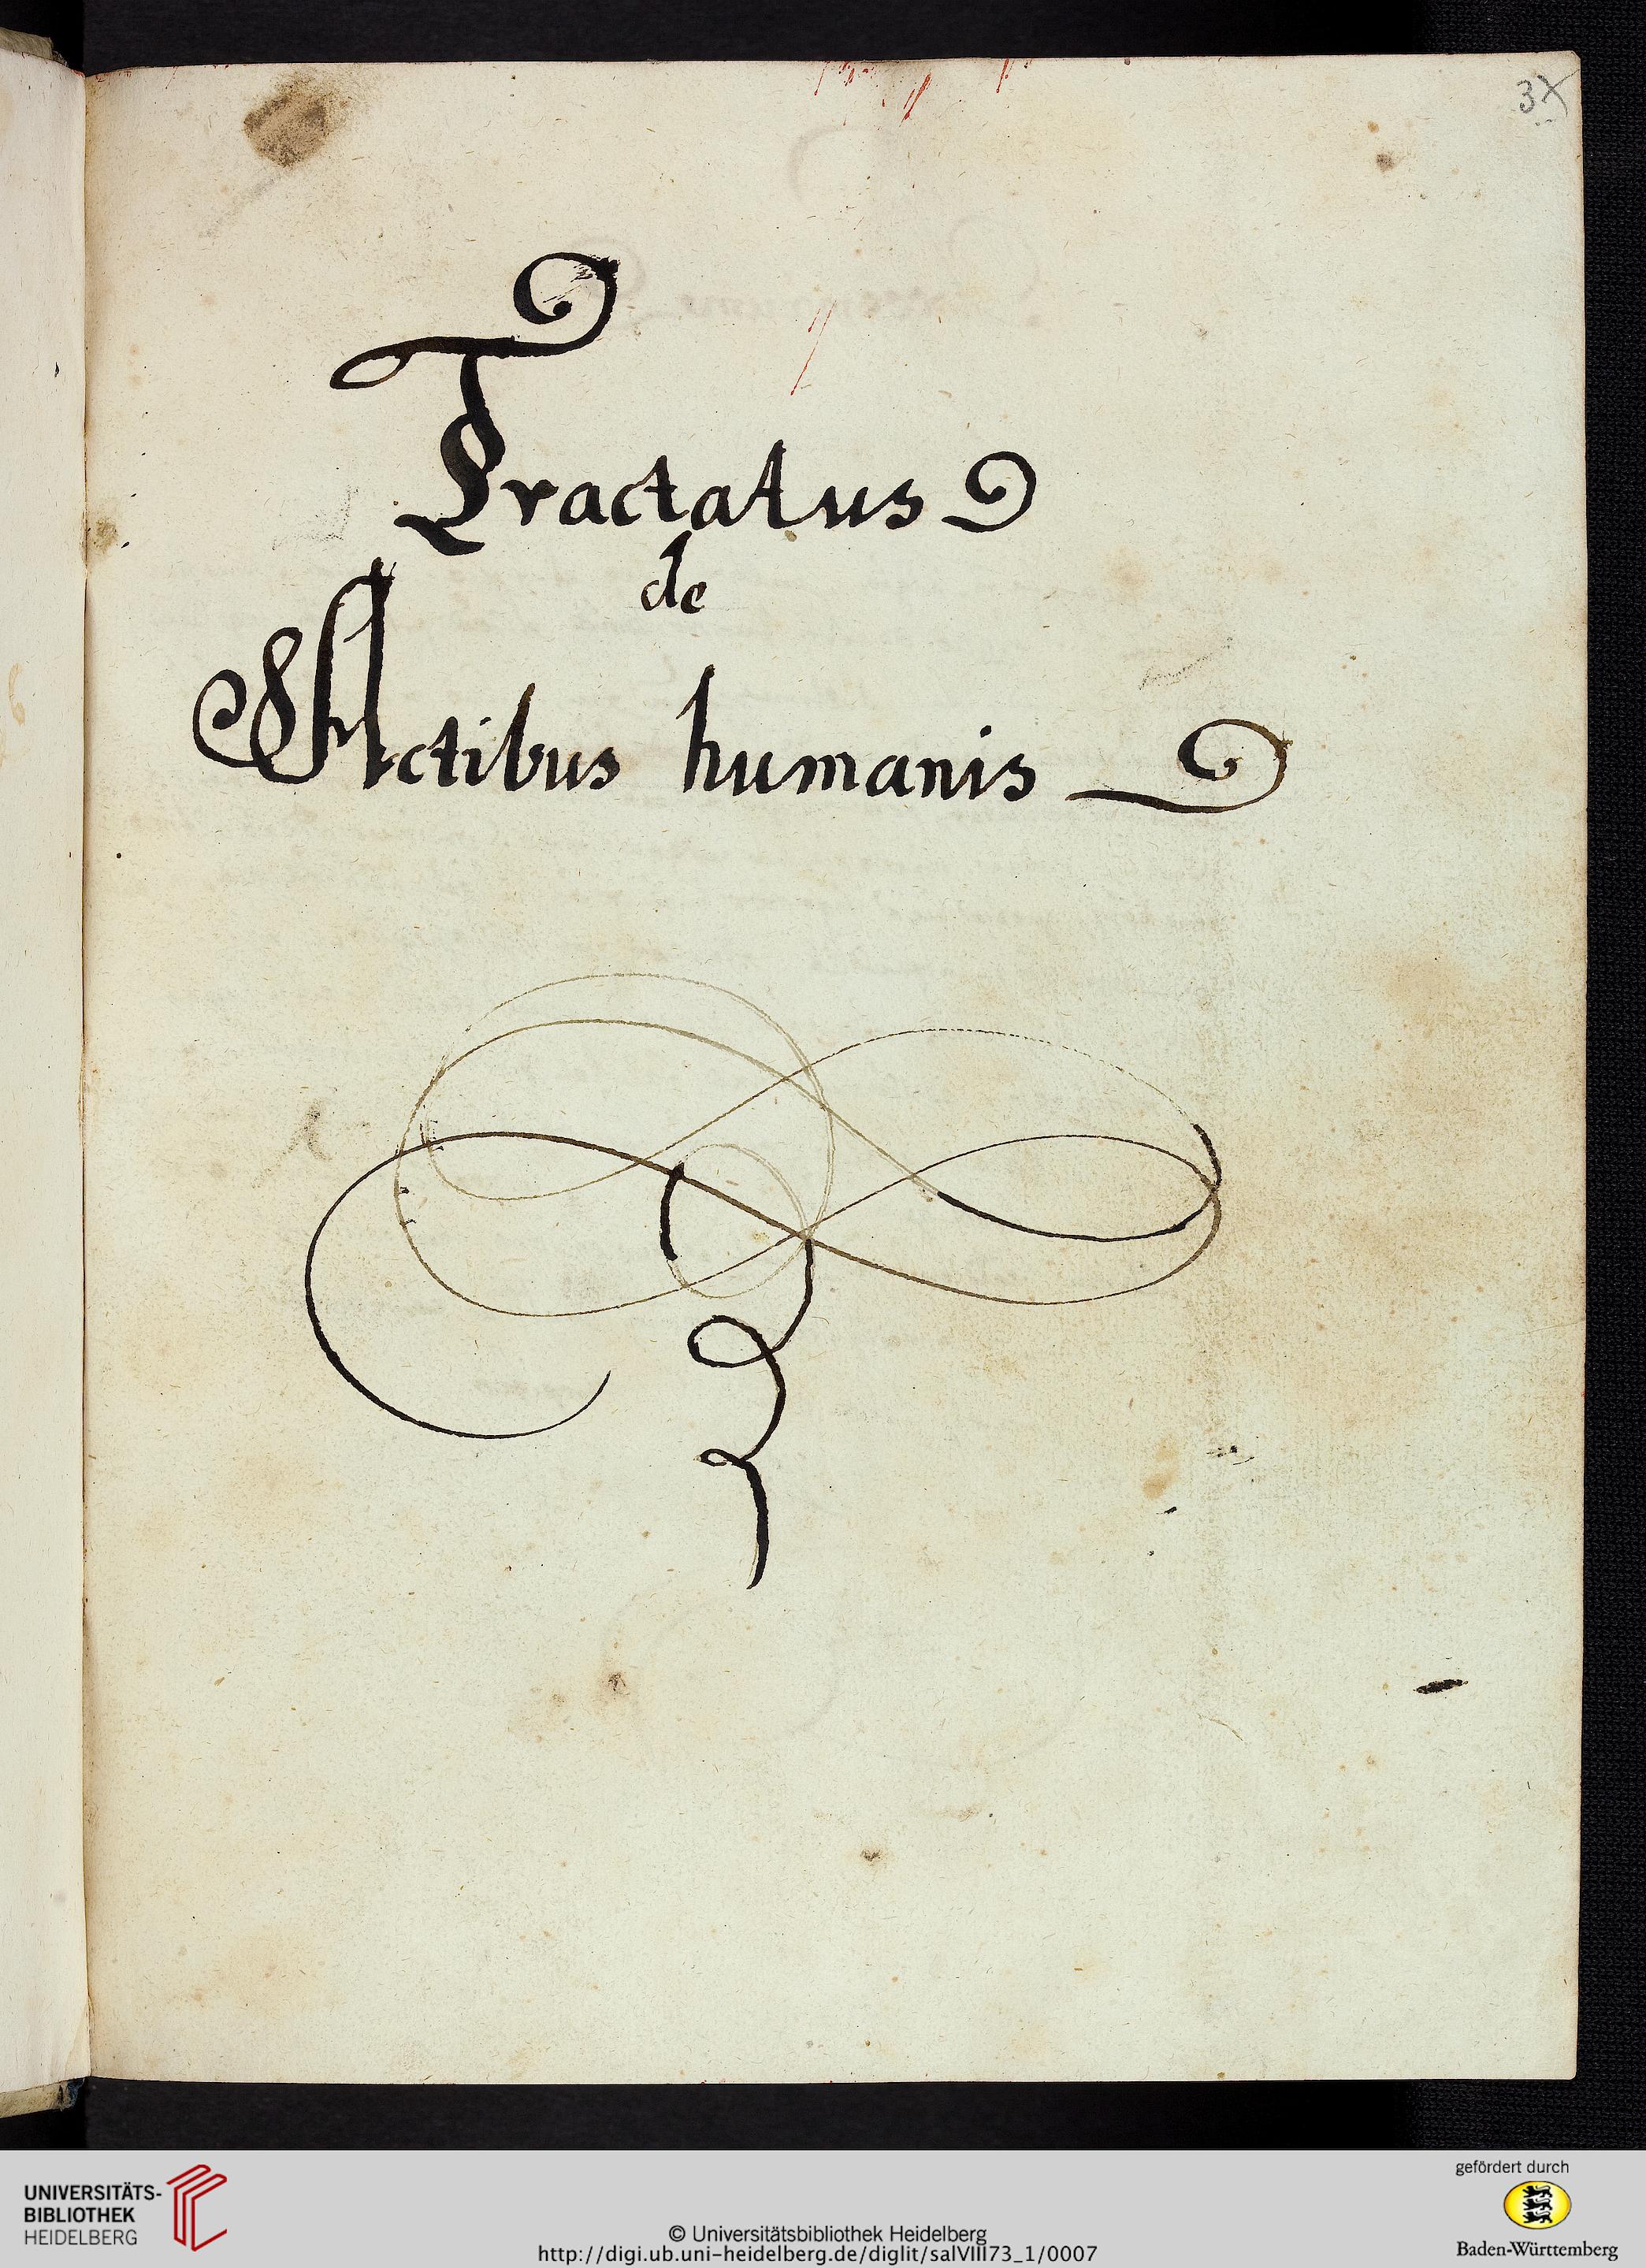 3X
Tractatus
de
Actibus humanis
UNIVERSITÄTS-
BIBLIOTHEK
HEIDELBERG
© Universitätsbibliothek Heidelberg
http://digi.ub.uni-heidelberg.de/diglit/salVIII73_1/0007
gefördert durch
Baden-Württemberg